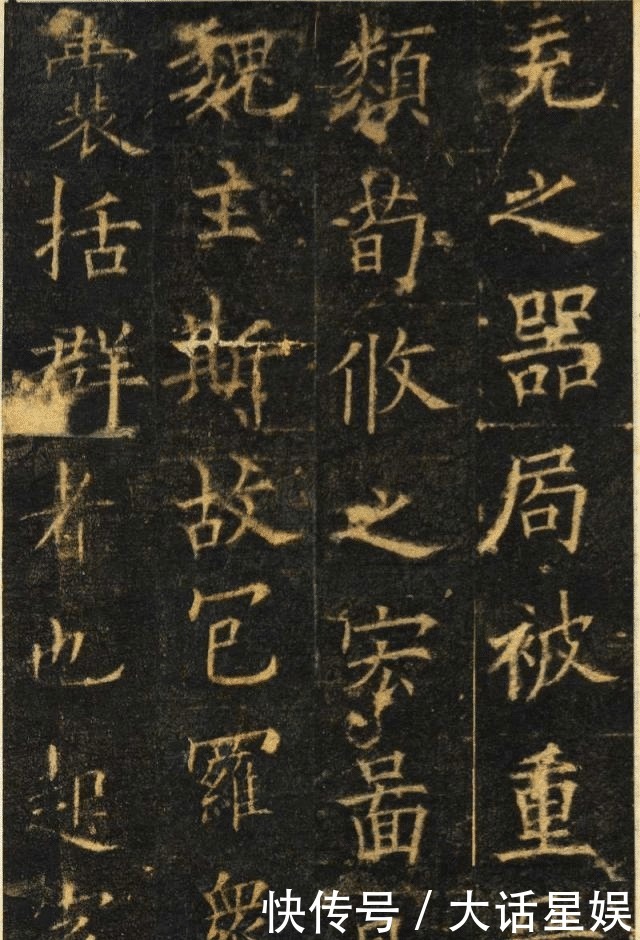 充之器局被重
類荀攸之宏啚
魏主斯故包羅衆
囊括群者也起
快传号 / 大话星娱